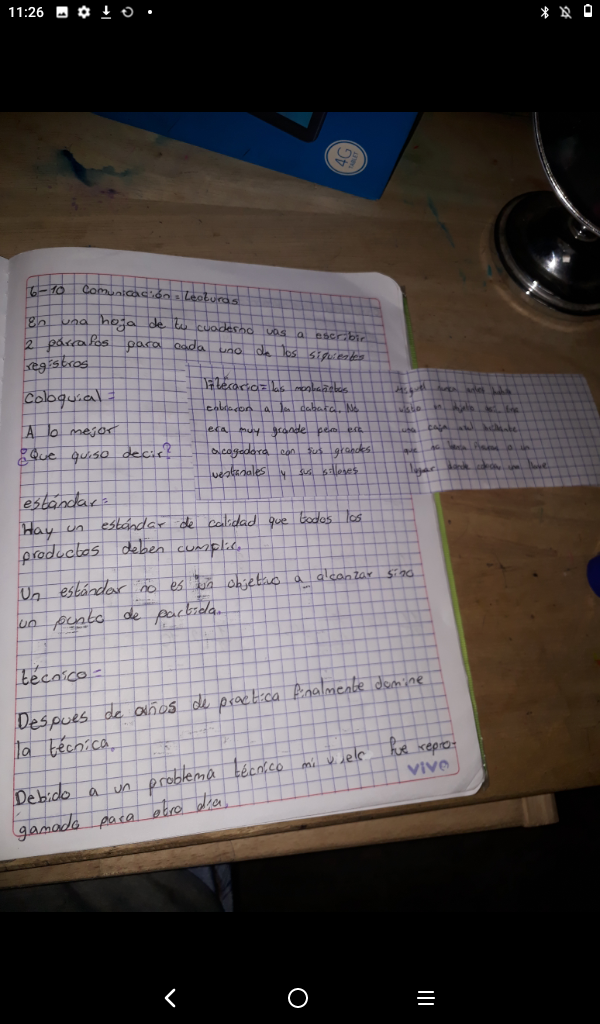 11:26
4G
6-10 Comunicación = Lecturas
En una hoja de tu cuaderno vas a escribir
2 párrafos para cada uno de los siguientes
registros
coloquial =
A lo mejor
¿Que quiso decir?
literario = las montañistas
entraron a la cabaña. No
era muy grande pero era
acogedora con sus grandes
ventanales y sus sillones
visto un objeto
una caja
lugar donde
estándar =
Hay un estándar de calidad que todos los
productos deben cumplir.
Un estándar no es un objetivo a alcanzar sino
un punto de partida.
técnico =
Despues de años de practica finalmente domine
la técnica.
Debido a un problema técnico mi vuelo fue repro-
gamado para otro dia.
vivo